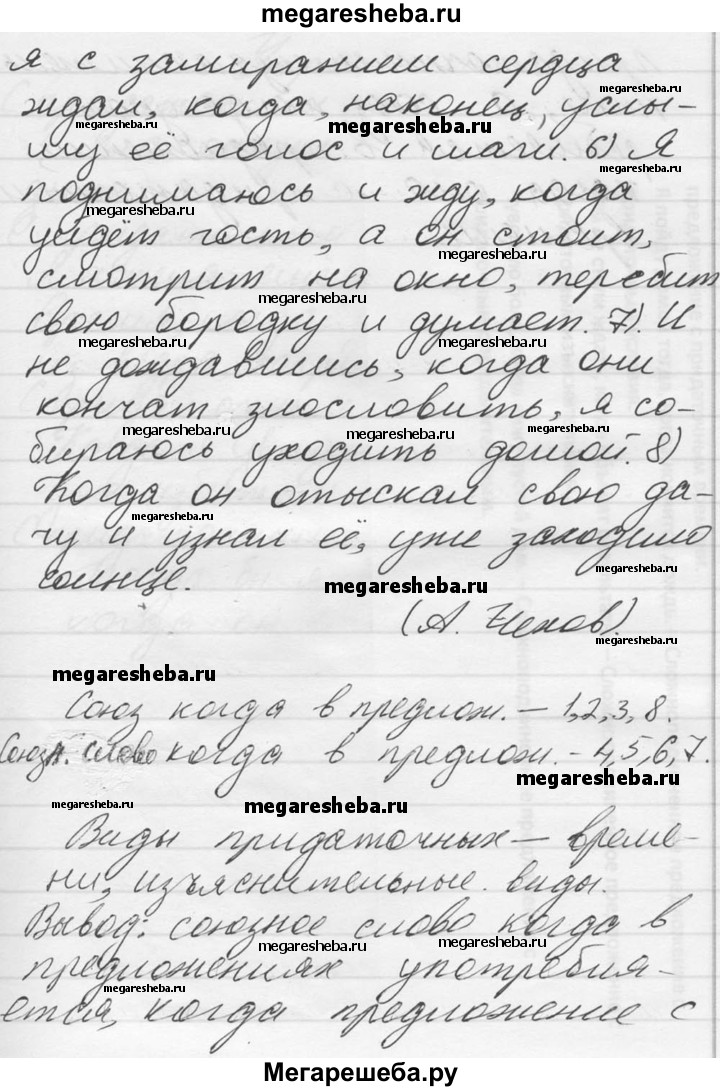 megaresheba.ru
я с замиранием сердца
ждал, когда, наконец, услы-
megaresheba.ru megaresheba.ru megaresheba.ru
шу её голос и шаги. 6) Я
поднимаюсь и жду, когда
megaresheba.ru megaresheba.ru
уйдёт гость, а он стоит,
megaresheba.ru
смотрит на окно, теребит
megaresheba.ru
свою бородку и думает. 7). И
megaresheba.ru
не дождавшись, когда они
megaresheba.ru
кончат злословить, я со-
megaresheba.ru megaresheba.ru megaresheba.ru
бираюсь уходить домой. 8)
Когда он отыскал свою да-
megaresheba.ru
чу и узнал её, уже заходило
megaresheba.ru
солнце. megaresheba.ru
(А. Чехов).
megaresheba.ru
Союз когда в предлож. – 1,2,3,8.
Союзн. слово когда в предлож. - 4,5,6,7.
megaresheba.ru
megaresheba.ru megaresheba.ru
Виды придаточных – време-
ни, изъяснительные виды.
Вывод: союзное слово когда в
megaresheba.ru megaresheba.ru
предложениях употребля-
megaresheba.ru
ется, когда предложение с
Мегарешеба.ру